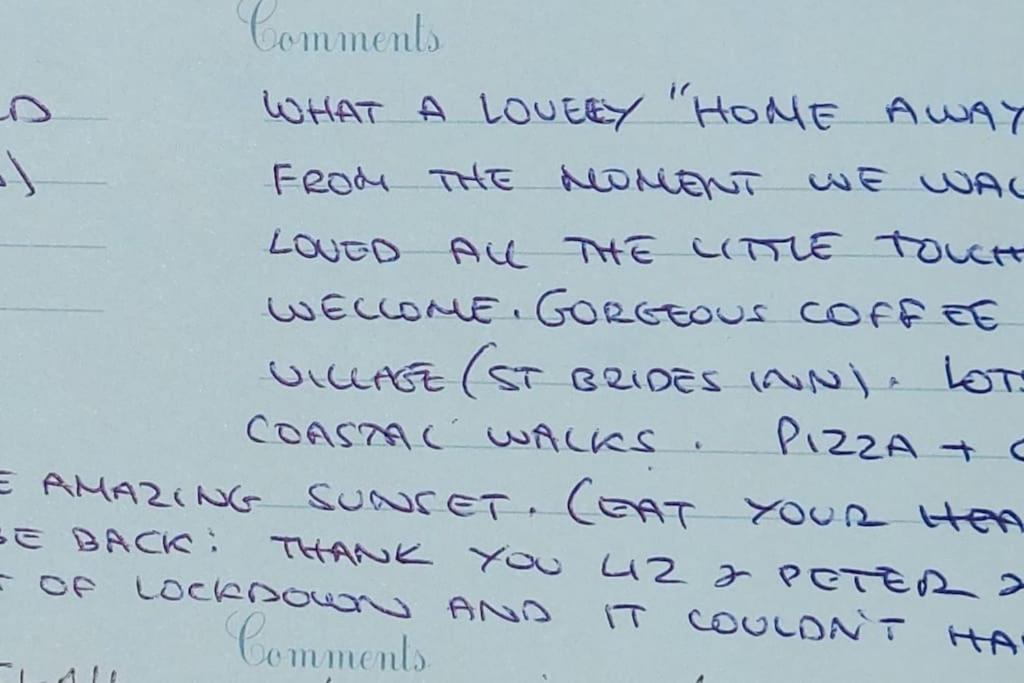 Comments
WHAT A LOVELY "HOME AWAY
FROM THE MOMENT WE WAL
LOVED ALL THE LITTLE TOUCH
WELCOME. GORGEOUS COFFEE
VILLAGE (ST BRIDES INN). LOTS
COASTAL WALKS. PIZZA +
E AMAZING SUNSET. (EAT YOUR HEA
BE BACK! THANK YOU LIZ & PETER &
OF LOCKDOWN AND IT COULDN'T HA
Comments